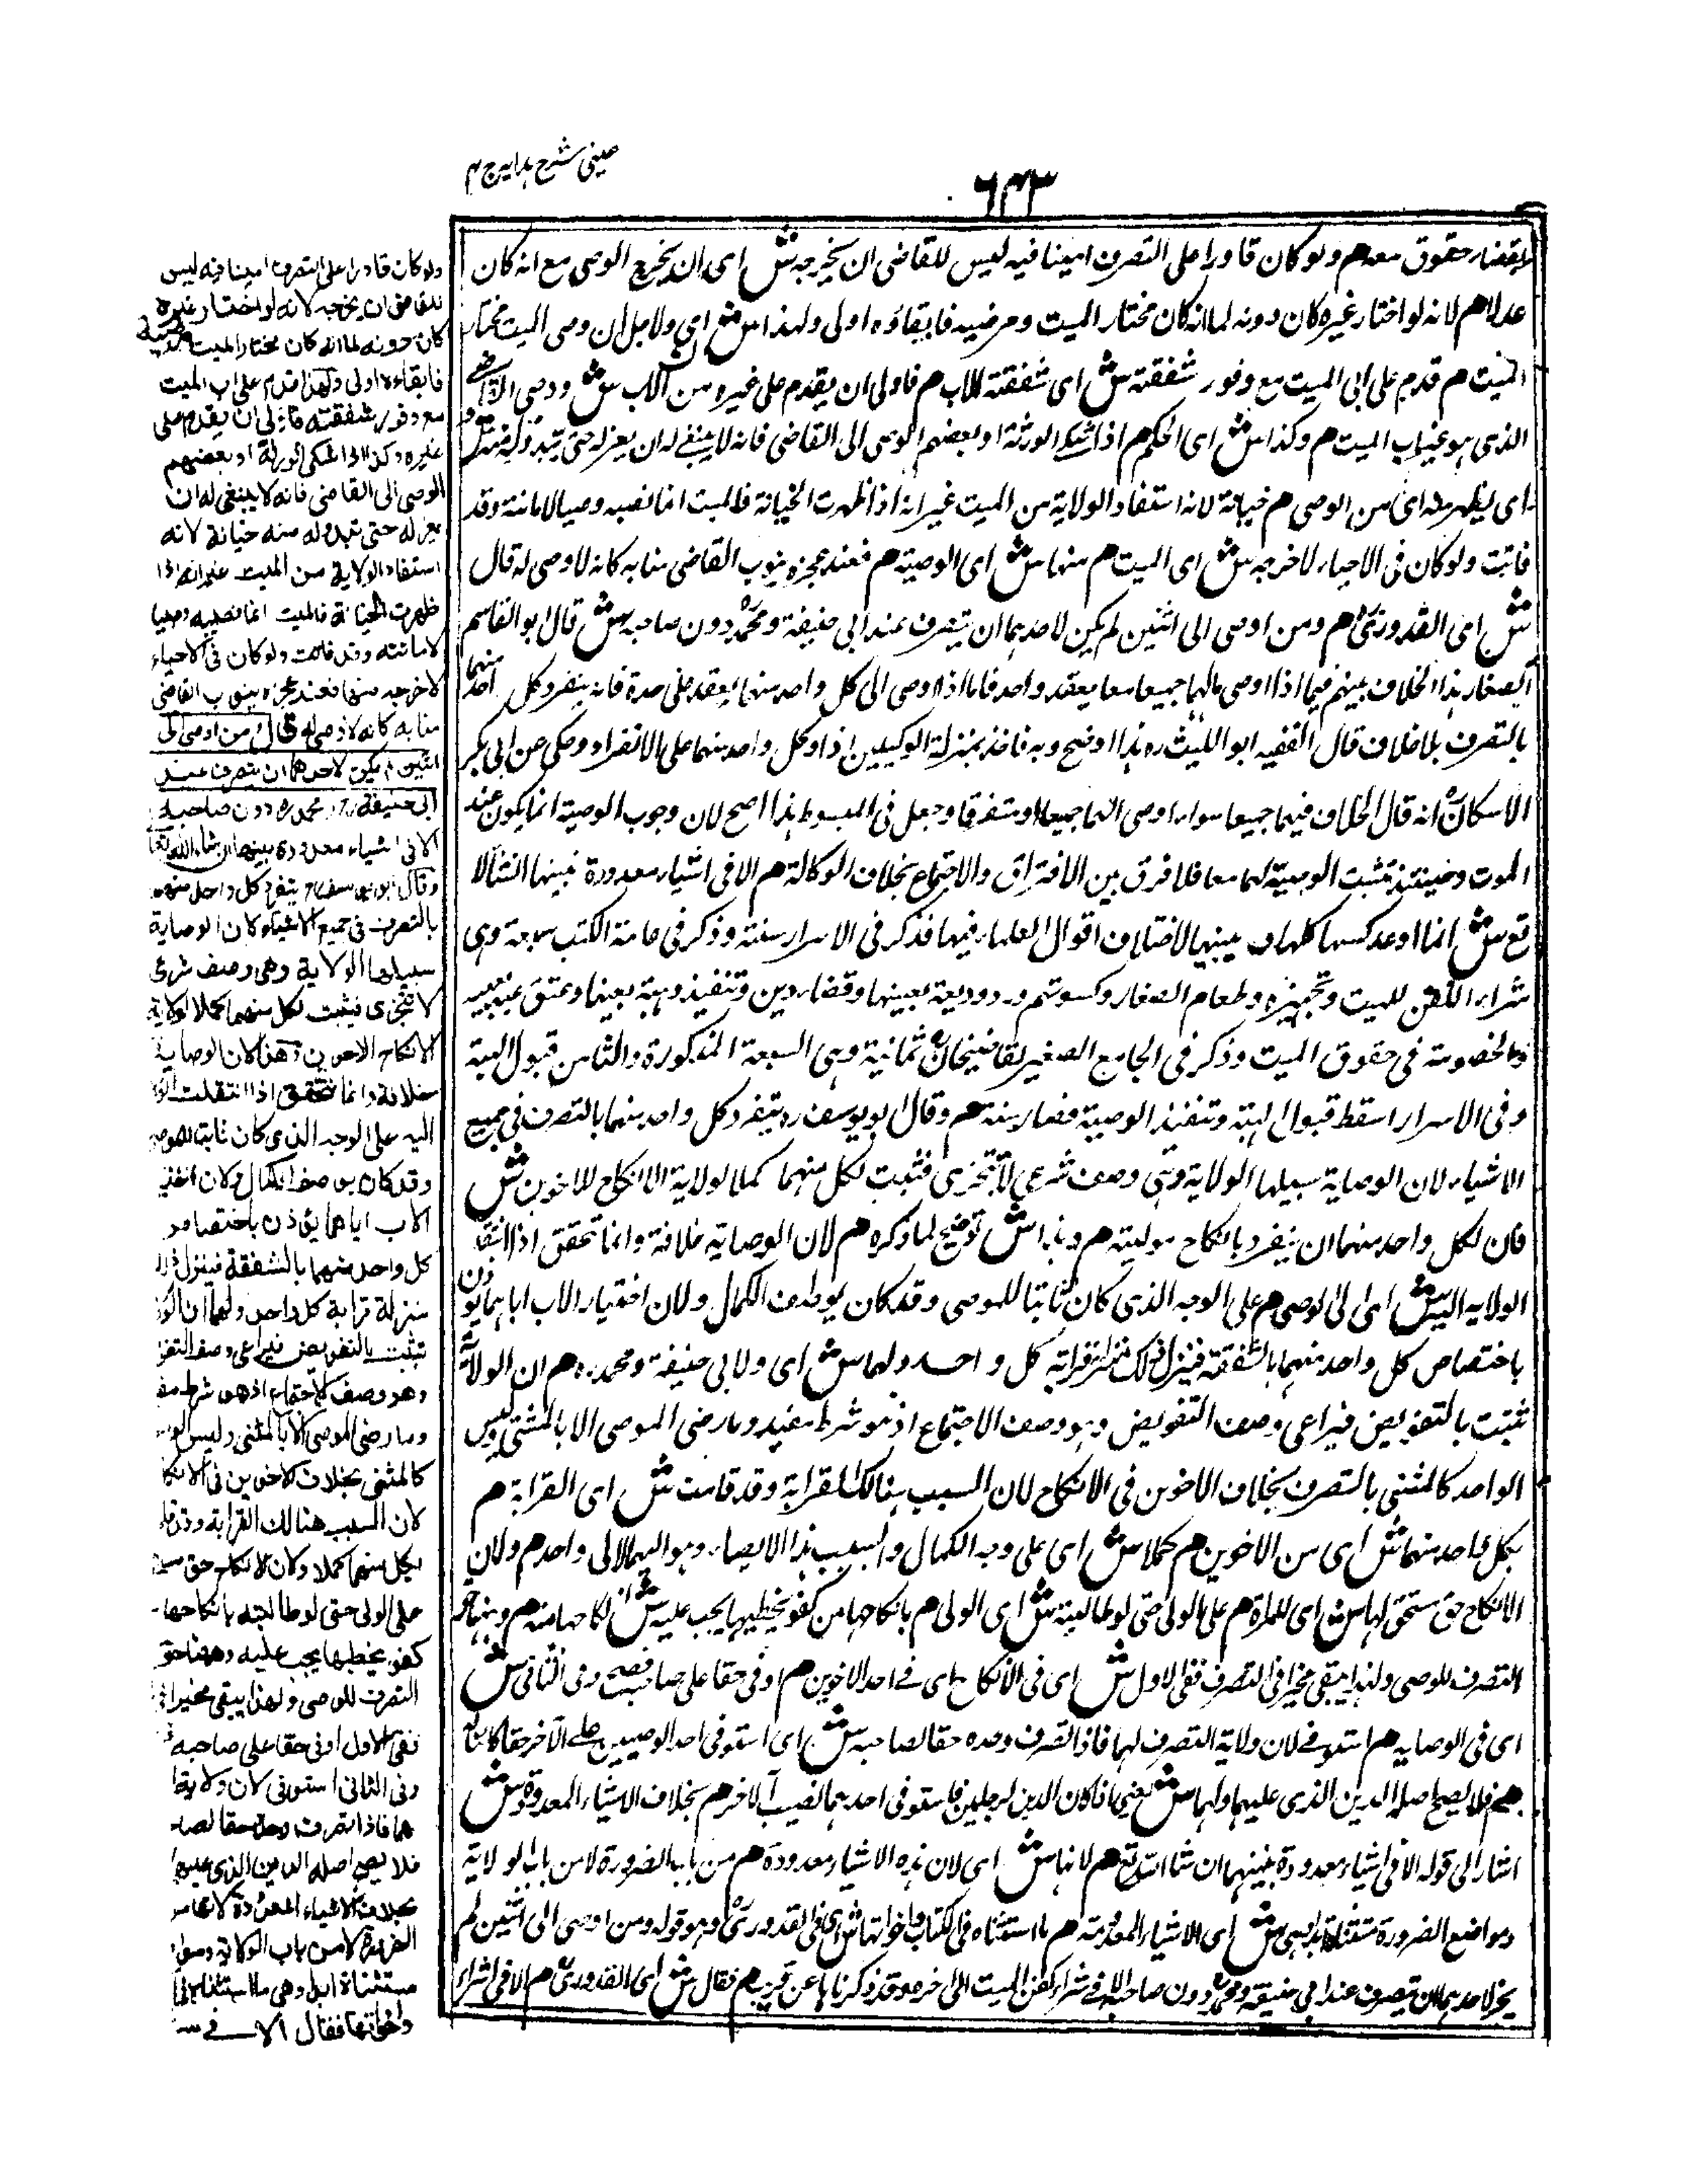 عینی شرح ہدایہ ج ۴
۶۴۳
لقضاء حقوق معہ هم ولو كان قادرا على التصرف امينا فيه ليس للقاضى ان يخرجه ش اى ان يخرج الوصى مع انه كان
عدلا هم لانه لو اختار غيره كان دونه لما انه كان مختار الميت ومرضيه فابقاؤه اولى ولهذا ش اى ولاجل ان وصى الميت مختار
الميت هم قدم على ابى الميت مع وفور شفقته ش اى شفقة الاب هم فاولى ان يقدم على غيره من الاب ش ووصى القاضى
الذى ہو غياب الميت هم وكذا ش اى الحكم هم اذا شكى الورثة او بعضهم الوصى الى القاضى فانه لا ينبغى له ان يعزله حتى تبدو له منه ش
اى يظهر منه اى من الوصى هم خيانة لانه استفاد الولاية من الميت غير انه اذا ظهرت الخيانة فالميت انما نصبه وصيا لامانته وقد
فاتت ولو كان فى الاحياء لاخرجه ش اى الميت هم منها ش اى الوصية هم فعند عجزه ينوب القاضى منابه كانه لا وصى له قال
ش اى القدورى هم ومن اوصى الى اثنين لم يكن لاحدهما ان يتصرف عند ابى حنيفة ومحمد دون صاحبه ش قال ابو القاسم
الصفار ہذا الخلاف بينهم فيما اذا اوصى اليهما جميعا معا بعقد واحد فاما اذا اوصى الى كل واحد منهما بعقد على حدة فانه ينفرد كل احد منهما
بالتصرف بلا خلاف قال الفقيه ابو الليث ره ہذا اوضح وبه ناخذ بمنزلة الوكيلين اذا وكل واحد منهما على الانفراد وحكى عن ابى بكر
الاسكاف انه قال الخلاف فيهما جميعا سواء اوصى اليهما جميعا او متفرقا وجعل فى المبسوط ہذا اصح لان وجوب الوصية انما يكون عند
الموت وحينئذ تثبت الوصية لهما معا فلا فرق بين الافتراق والاجتماع بخلاف الوكالة هم الا فى اشياء معدودة نبينها ان شاء الله
تع ش انما وعد بيينها لاختلاف اقوال العلماء فيها فذكر فى الاسرار ستة وذكر فى عامة الكتب سبعة وہى
شراء الكفن للميت وتجهيزه وطعام الصغار وكسوتهم ورد وديعة بعينها وقضاء دين وتنفيذ وصية بعينها وعتق عبد بعينه
والخصومة فى حقوق الميت وذكر فى الجامع الصغير لقاضيخان ثمانية وہى السبعة المذكورة والثامن قبول الهبة
وفى الاسرار اسقط قبول الهبة وتنفيذ الوصية فصار ستة هم وقال ابو يوسف ره يتفرد كل واحد منهما بالتصرف فى جميع
الاشياء لان الوصاية سبيلها الولاية وہى وصف شرعى لا تتجزى فتثبت لكل منهما كملا كولاية الانكاح للاخوين ش
فان لكل واحد منهما ان ينفرد بانكاح موليته هم وہذا ش توضيح لما ذكره هم لان الوصاية خلافة وانما تحقق اذا انتقلت
الولاية اليه ش اى الى الوصى هم على الوجه الذى كان ثابتا للموصى وقد كان بوصف الكمال ولان اختيار الاب اياہما يوذن
باختصاص كل واحد منهما بالشفقة فينزل ذلك منزلة قرابة كل واحد ولهما ش اى ولابى حنيفة ومحمد ره هم ان الولاية
تثبت بالتفويض فيراعى وصف التفويض وہو وصف الاجتماع اذ ہو شرط مفيد وما رضى الموصى الا بالمثنى وليس
الواحد كالمثنى بالتصرف بخلاف الاخوين فى الانكاح لان السبب ہنالك القرابة وقد قامت ش اى القرابة هم
بكل واحد منهما ش اى من الاخوين هم كملا ش اى على وجه الكمال والسبب ہذا الايصاء وہو اليهما لا الى واحد هم ولان
الانكاح حق مستحق لها ش اى للمراة هم على الولى حتى لو طالبته ش اى الولى هم بانكاحها من كفو يخطبها يجب عليه ش انكاحها منه هم وہهنا حق
التصرف للوصى ولهذا يبقى مخيرا فى التصرف ففى الاول ش اى فى الانكاح اى فى احد الاخوين هم اوفى حقا على صاحبه فصح وفى الثانى ش
اى فى الوصاية هم استوفى لان ولاية التصرف لهما فاذا تصرف وحده حقا لصاحبه ش اى استوفى احد الوصيين على الآخر حقا
هم فلا يصح اصله الدين الذى عليهما ولهما ش يعنى اذا كان الدين لرجلين فاستوفى احدہما نصيب الآخر هم بخلاف الاشياء المعدودة ش
اشار الى قوله الا فى اشياء معدودة نبينها ان شاء الله تع هم لانها ش اى لان ہذه الاشياء معدودة هم من باب الضرورة لا من باب الولاية
ومواضع الضرورة مستثناة ابدا وہى ش اى الاشياء المعدودة هم ما استثناه فى الكتاب واخواتها ش اى فى القدورى وہو قوله ومن اوصى الى اثنين لم
يجز لاحدہما ان يتصرف عند ابى حنيفة ومحمد دون صاحبه الا فى شراء كفن الميت الى آخره وقد ذكرنا ہا عن قريب هم فقال ش اى القدورى هم الا فى شراء
ولو كان قادرا على التصرف امينا فيه ليس
للقاضى ان يخرجه لانه لو اختار غيره
كان دونه لما انه كان مختار الميت ومرضيه
فابقاءه اولى ولهذا قدم على اب الميت
مع وفور شفقته فاولى ان يقدم على
غيره وكذا اذا شكى الورثة او بعضهم
الوصى الى القاضى فانه لا ينبغى له ان
يعزله حتى تبدو له منه خيانة لانه
استفاد الولاية من الميت غير انه اذا
ظهرت الخيانة فالميت انما نصبه وصيا
لامانته وقد فاتت ولو كان فى الاحياء
لاخرجه منها فعند عجزه ينوب القاضى
منابه كانه لا وصى له قال ومن اوصى الى
اثنين لم يكن لاحدهما ان يتصرف عند
ابى حنيفة رح ومحمد ره دون صاحبه
الا فى اشياء معدودة نبينها ان شاء الله تعا
وقال ابو يوسف رح يتفرد كل واحد منهما
بالتصرف فى جميع الاشياء لان الوصاية
سبيلها الولاية وهى وصف شرعى
لا تتجزى فيثبت لكل منهما كملا كولاية
الانكاح للاخوين وهذا لان الوصاية
خلافة وانما تتحقق اذا انتقلت
اليه على الوجه الذى كان ثابتا للموصى
وقد كان بوصف الكمال ولان اختيار
الاب اياهما يؤذن باختصاص
كل واحد منهما بالشفقة فينزل ذلك
منزلة قرابة كل واحد ولهما ان الولاية
تثبت بالتفويض فيراعى وصف التفويض
وهو وصف الاجتماع اذ هو شرط مفيد
وما رضى الموصى الا بالمثنى وليس الواحد
كالمثنى بخلاف الاخوين فى الانكاح
لان السبب هنالك القرابة وقد قامت
بكل منهما كملا ولان الانكاح حق
على الولى حتى لو طالبته بانكاحها
كفو يخطبها يجب عليه وههنا حق
التصرف للوصى ولهذا يبقى مخيرا
ففى الاول اوفى حقا على صاحبه
وفى الثانى استوفى لان ولاية
لهما فاذا تصرف وحده حقا لصاحبه
فلا يصح اصله الدين الذى عليهما
بخلاف الاشياء المعدودة لانها من
الضرورة لا من باب الولاية ومواضع
مستثناة ابدا وهى ما استثناه فى
واخواتها فقال الا فى